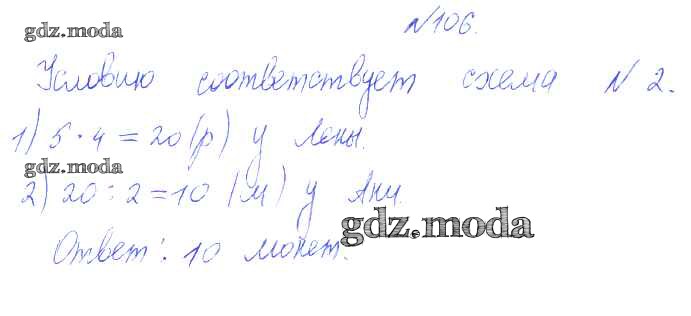 №106.
gdz.moda
Условию соответствует схема №2.
1) 5 · 4 = 20 (р) у Лены.
gdz.moda
2) 20 : 2 = 10 (м) у Ани.
gdz.moda
Ответ: 10 монет.